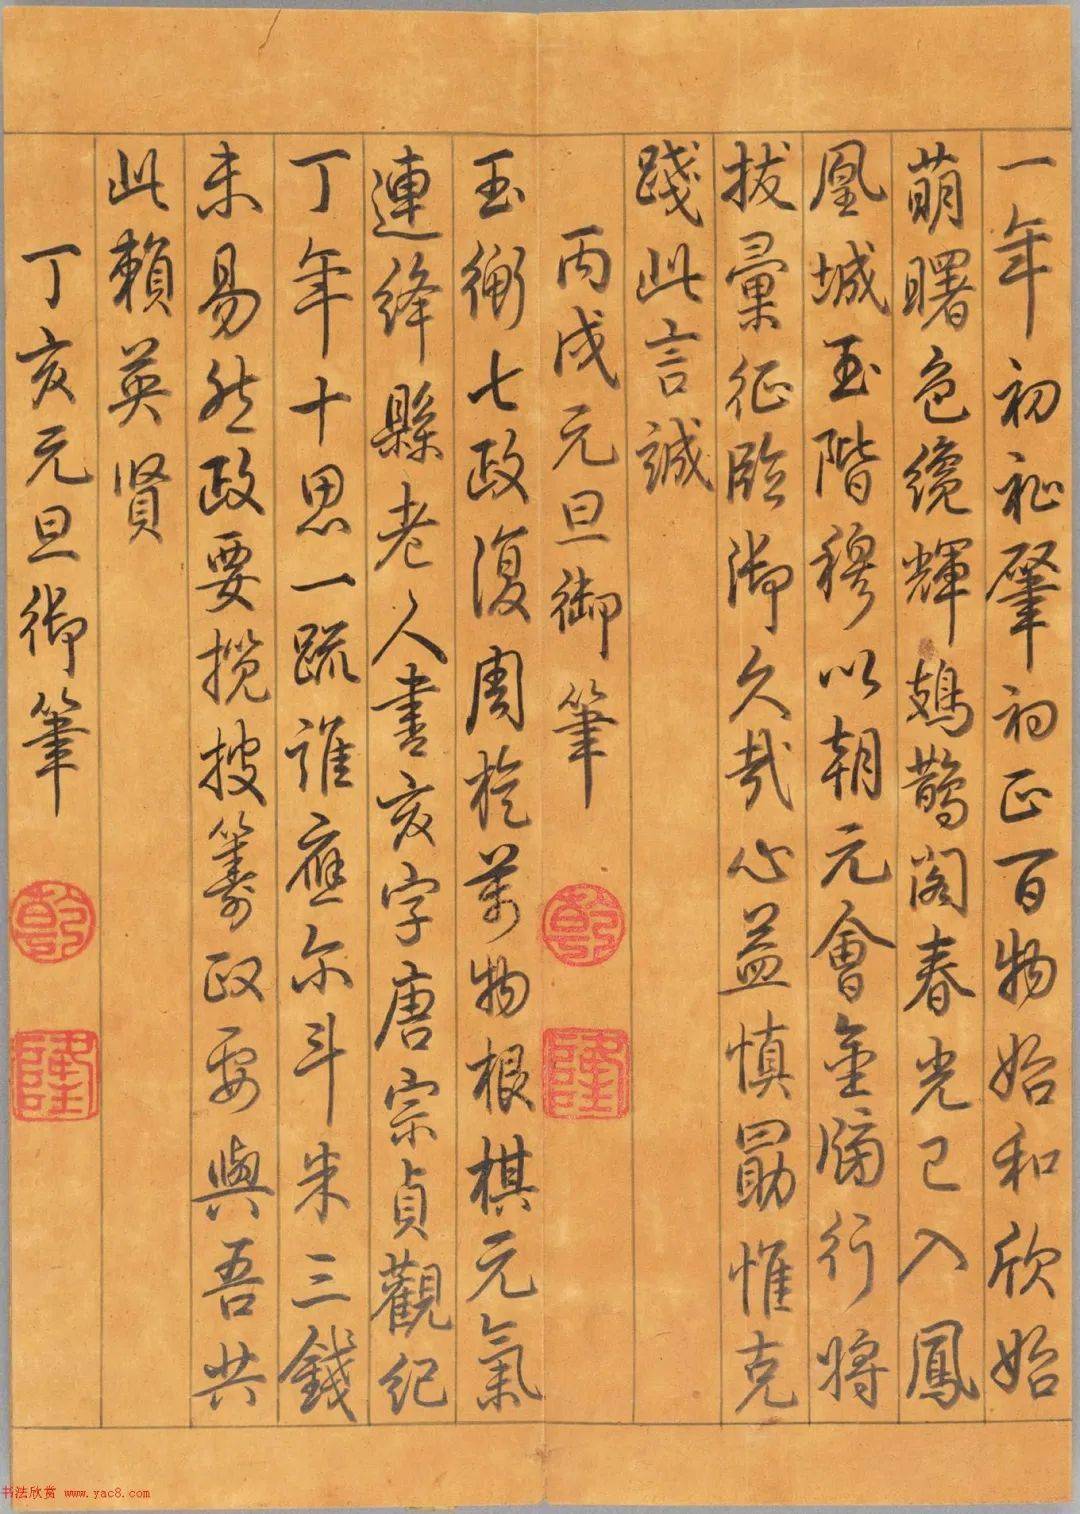 一年初祉肇初正百物始和欣始
萌曙色纔輝鳷鵲閣春光已入鳳
凰城玉階穆以朝元會金牖行將
拔彙征臨御久哉心益慎勖惟克
踐此言誠
丙戌元旦御筆
玉衡七政復周旋萬物根棋元氣
連絳縣老人書亥字唐宗貞觀紀
丁年十思一疏誰應尔斗米三錢
未易然政要攬披籌政要與吾共
此賴英賢
丁亥元旦御筆
乾
隆
乾
隆
书法欣赏 www.yac8.com